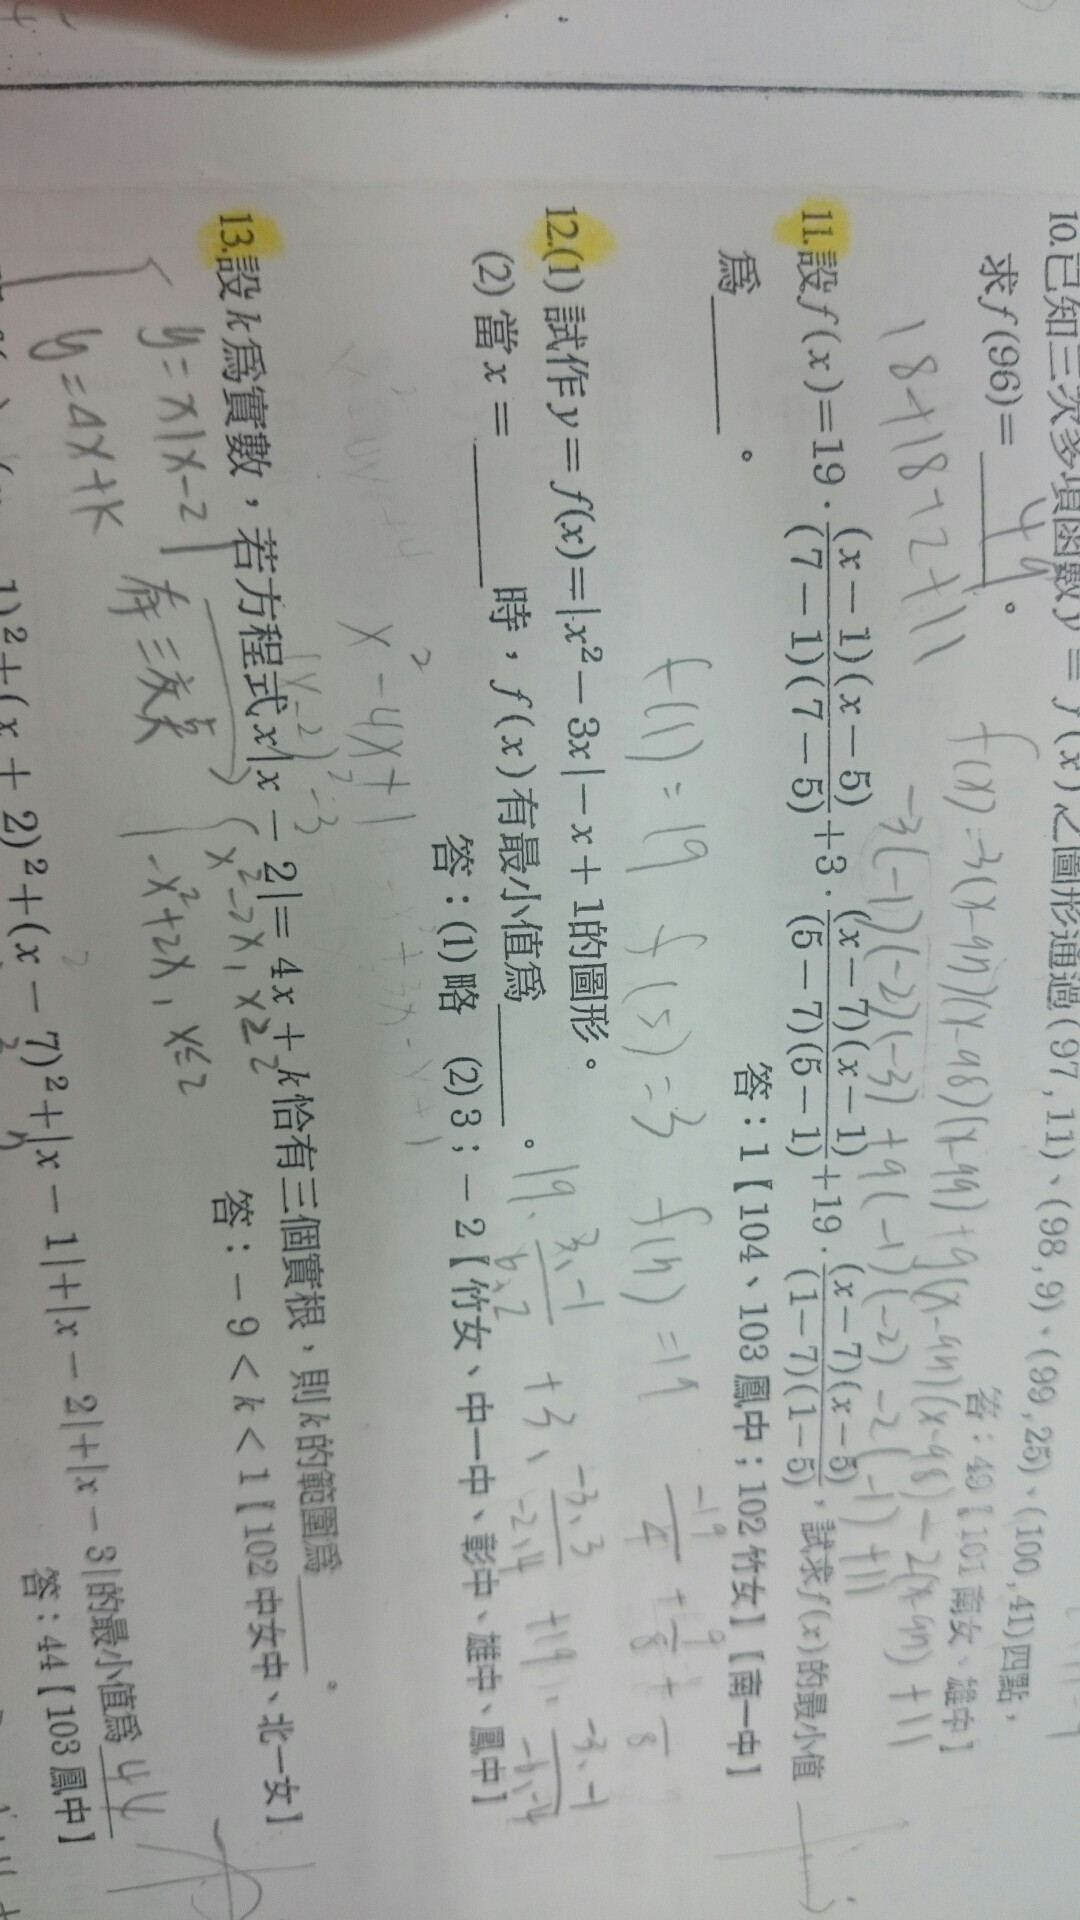 10.已知三次多項函數y = f(x)之圖形通過(97,11)、(98,9)、(99,25)、(100,41)四點，
求f(96)= 49 。
答：49【101南女、雄中】
18+18+2+11
f(x)=3(x-97)(x-98)(x-99)+9(x-97)(x-98)-2(x-97)+11
-3(-1)(-2)(-3)+9(-1)(-2)-2(-1)+11
11.設f(x)=19·(x-1)(x-5)/(7-1)(7-5)+3·(x-7)(x-1)/(5-7)(5-1)+19·(x-7)(x-5)/(1-7)(1-5)，試求f(x)的最小值
為 。
答：1【104、103鳳中；102竹女】【南一中】
f(1)=19 f(5)=3 f(7)=19
12.(1)試作y = f(x)=|x²-3x|-x+1的圖形。
(2)當x = 時，f(x)有最小值為 。
答：(1)略 (2)3；-2【竹女、中一中、彰中、雄中、鳳中】
x²-4x+1
(x-2)²-3
13.設k為實數，若方程式x|x-2|=4x+k恰有三個實根，則k的範圍為 。
答：-9<k<1【102中女中、北一女】
y=x|x-2| { x²-2x, x≥2
-x²+2x, x≤2
y=4x+k
有三交點
1)²+(x+2)²+(x-7)²+|x-1|+|x-2|+|x-3|的最小值為 44
答：44【103鳳中】